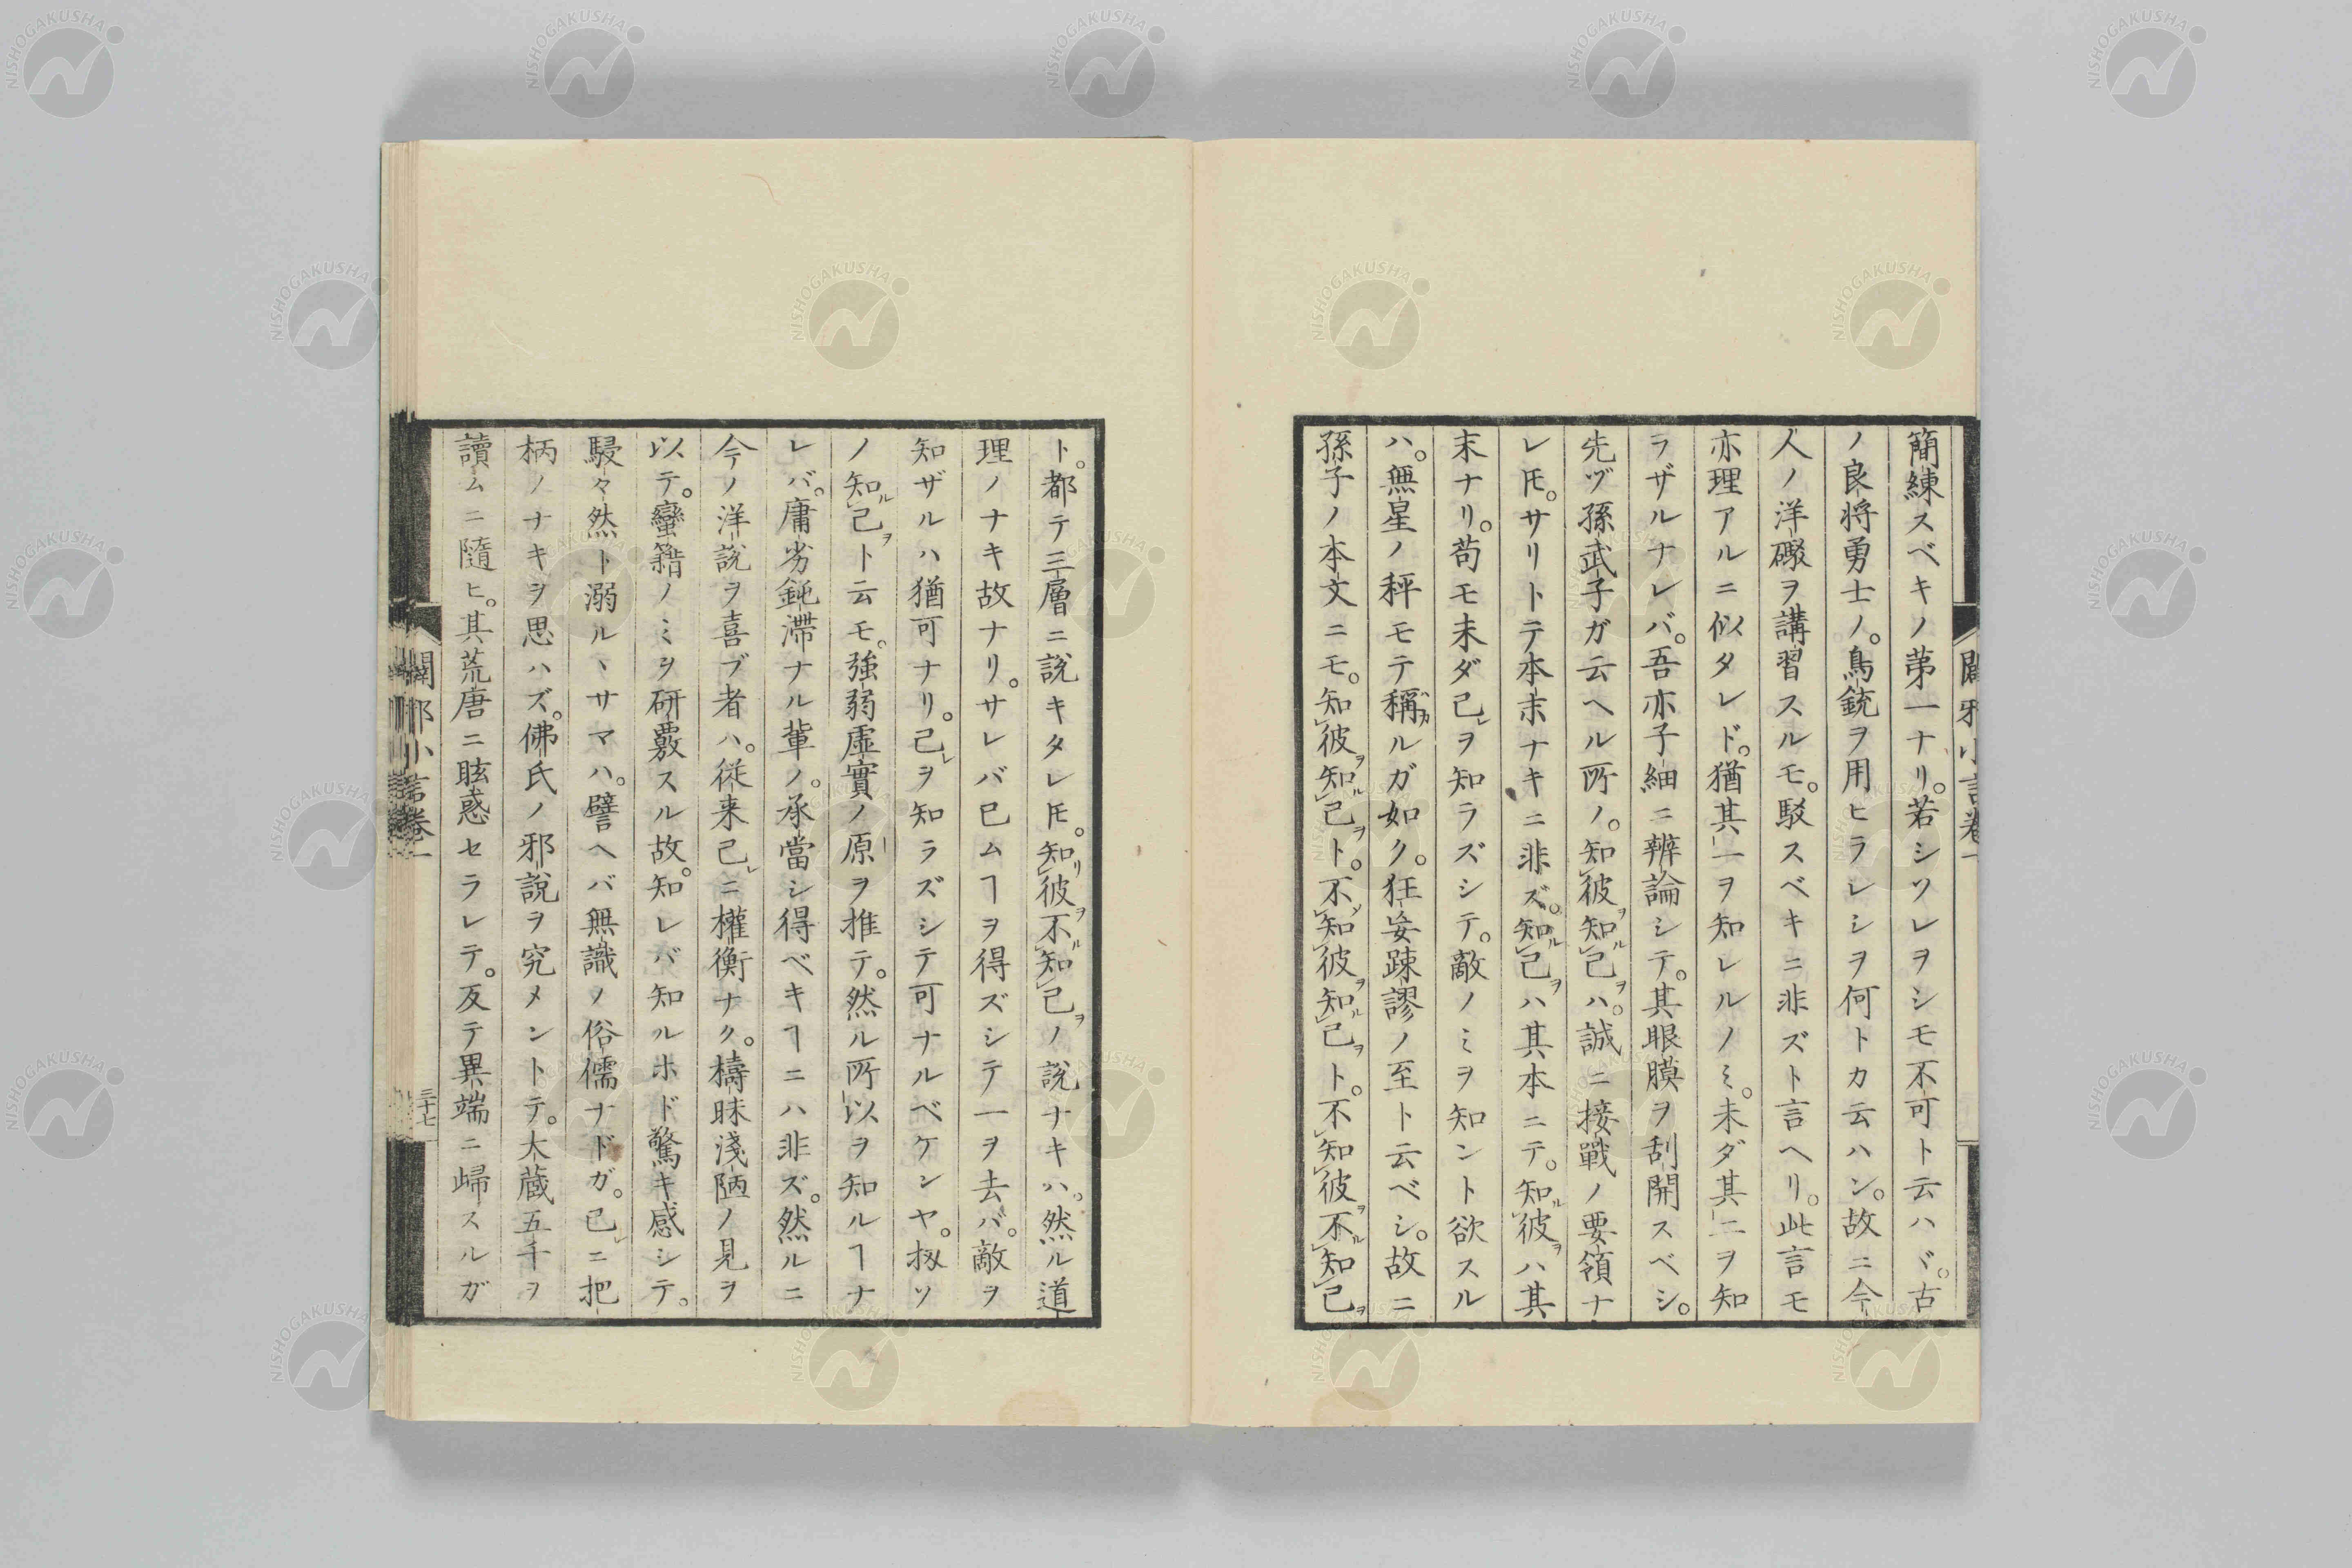 簡練スベキノ第一ナリ。若シソレヲシモ不可ト云ハヾ。古
ノ良将勇士ノ。鳥銃ヲ用ヒラレシヲ何トカ云ハン。故ニ今
人ノ洋礟ヲ講習スルモ。駁スベキニ非ズト言ヘリ。此言モ
亦理アルニ似タレド。猶其一ヲ知レルノミ。未ダ其二ヲ知
ラザルナレバ。吾亦子細ニ辨論シテ。其眼膜ヲ刮開スベシ。
先ヅ孫武子ガ云ヘル所ノ。知彼ヲ知ルハ己ヲハ。誠ニ接戰ノ要領ナ
レ𪜈。サリトテ本末ナキニ非ズ。知ル己ヲハ其本ニテ。知ル彼ヲハ其
末ナリ。苟モ未ダ己レヲ知ラズシテ。敵ノミヲ知ント欲スル
ハ。無星ノ秤モテ稱カルガ如ク。狂妄疎謬ノ至ト云ベシ。故ニ
孫子ノ本文ニモ。知彼ヲ知ル己ヲト。不メ知彼ヲ知ル己ヲト。不知彼ヲ不ル知己ヲ
ト。都テ三層ニ說キタレ𪜈。知リ彼ヲ不ル知己ヲノ說ナキハ。然ル道
理ノナキ故ナリ。サレバ已ムヿヲ得ズシテ一ヲ去バ。敵ヲ
知ザルハ猶可ナリ。己レヲ知ラズシテ可ナルベケンヤ。扨ソ
ノ知ル己ヲト云モ。強弱虛實ノ原ヲ推テ。然ル所以ヲ知ルヿナ
レバ。庸劣鈍滯ナル輩ノ。承當シ得ベキヿニハ非ズ。然ルニ
今ノ洋說ヲ喜ブ者ハ。從来己レニ權衡ナク。檮昧淺陋ノ見ヲ
以テ。蠻籍ノミヲ研覈スル故。知レバ知ルホド驚キ感シテ。
駸々然ト溺ルヽサマハ。譬ヘバ無識ノ俗儒ナドガ。己レニ把
柄ノナキヲ思ハズ。佛氏ノ邪說ヲ究メントテ。大蔵五千ヲ
讀ムニ隨ヒ。其荒唐ニ眩惑セラレテ。反テ異端ニ歸スルガ
闢邪小言卷一
三十七
闢邪小言卷一
NISHOGAKUSHA